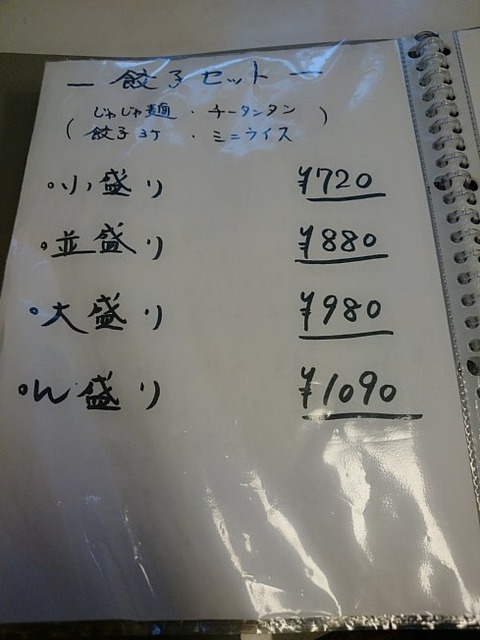 ― 餃子セット ―
(じゃじゃ麺・チータンタン
餃子3ヶ・ミニライス)
・小盛り ¥720
・並盛り ¥880
・大盛り ¥980
・ん盛り ¥1090